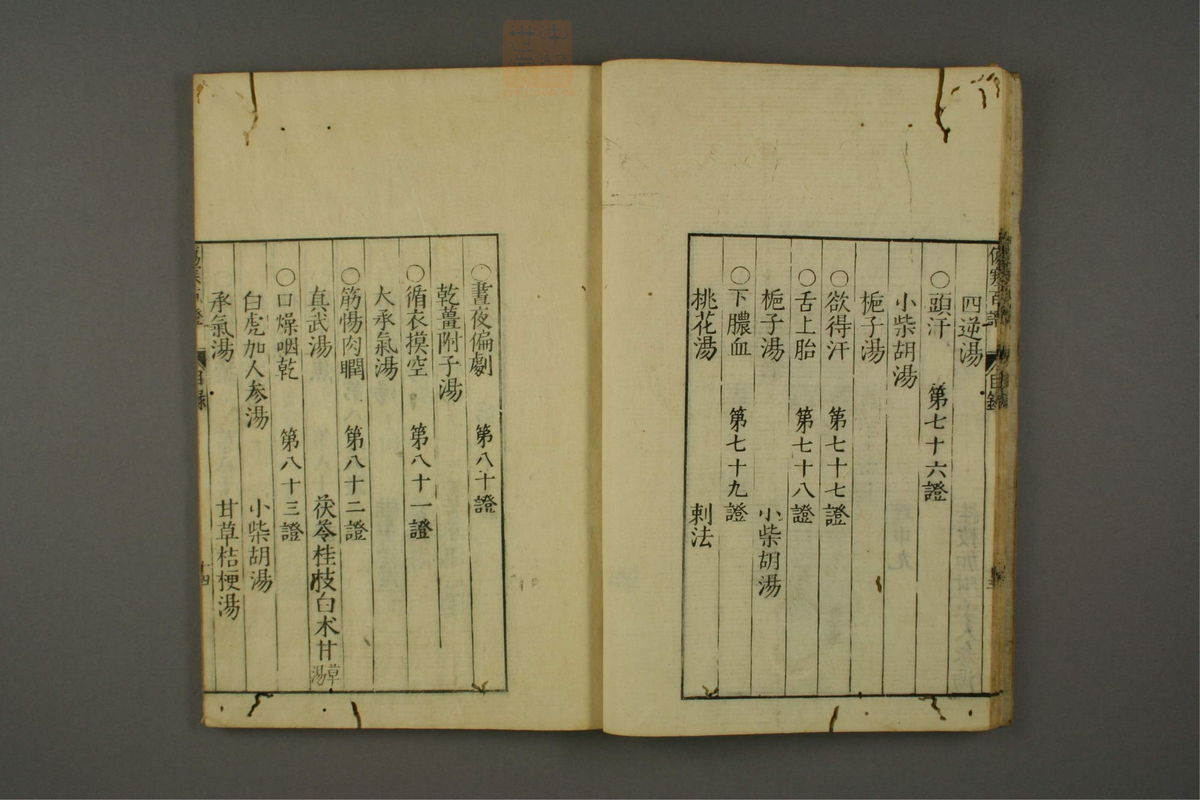 四逆湯
○頭汗 第七十六證
小柴胡湯
梔子湯
○欲得汗 第七十七證
○舌上胎 第七十八證
梔子湯 小柴胡湯
○下膿血 第七十九證
桃花湯 刺法
目録
○晝夜偏劇 第八十證
乾薑附子湯
○循衣摸空 第八十一證
大承氣湯
○筋惕肉瞤 第八十二證
真武湯 茯苓桂枝白术甘草湯
○口燥咽乾 第八十三證
白虎加人参湯 小柴胡湯
承氣湯 甘草桔梗湯
目録 十四